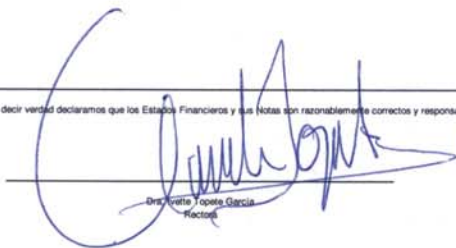 decir verdad declaramos que los Estados Financieros y sus Notas son razonablemente correctos y respons
Dra. Ivette Topete García
Rectora